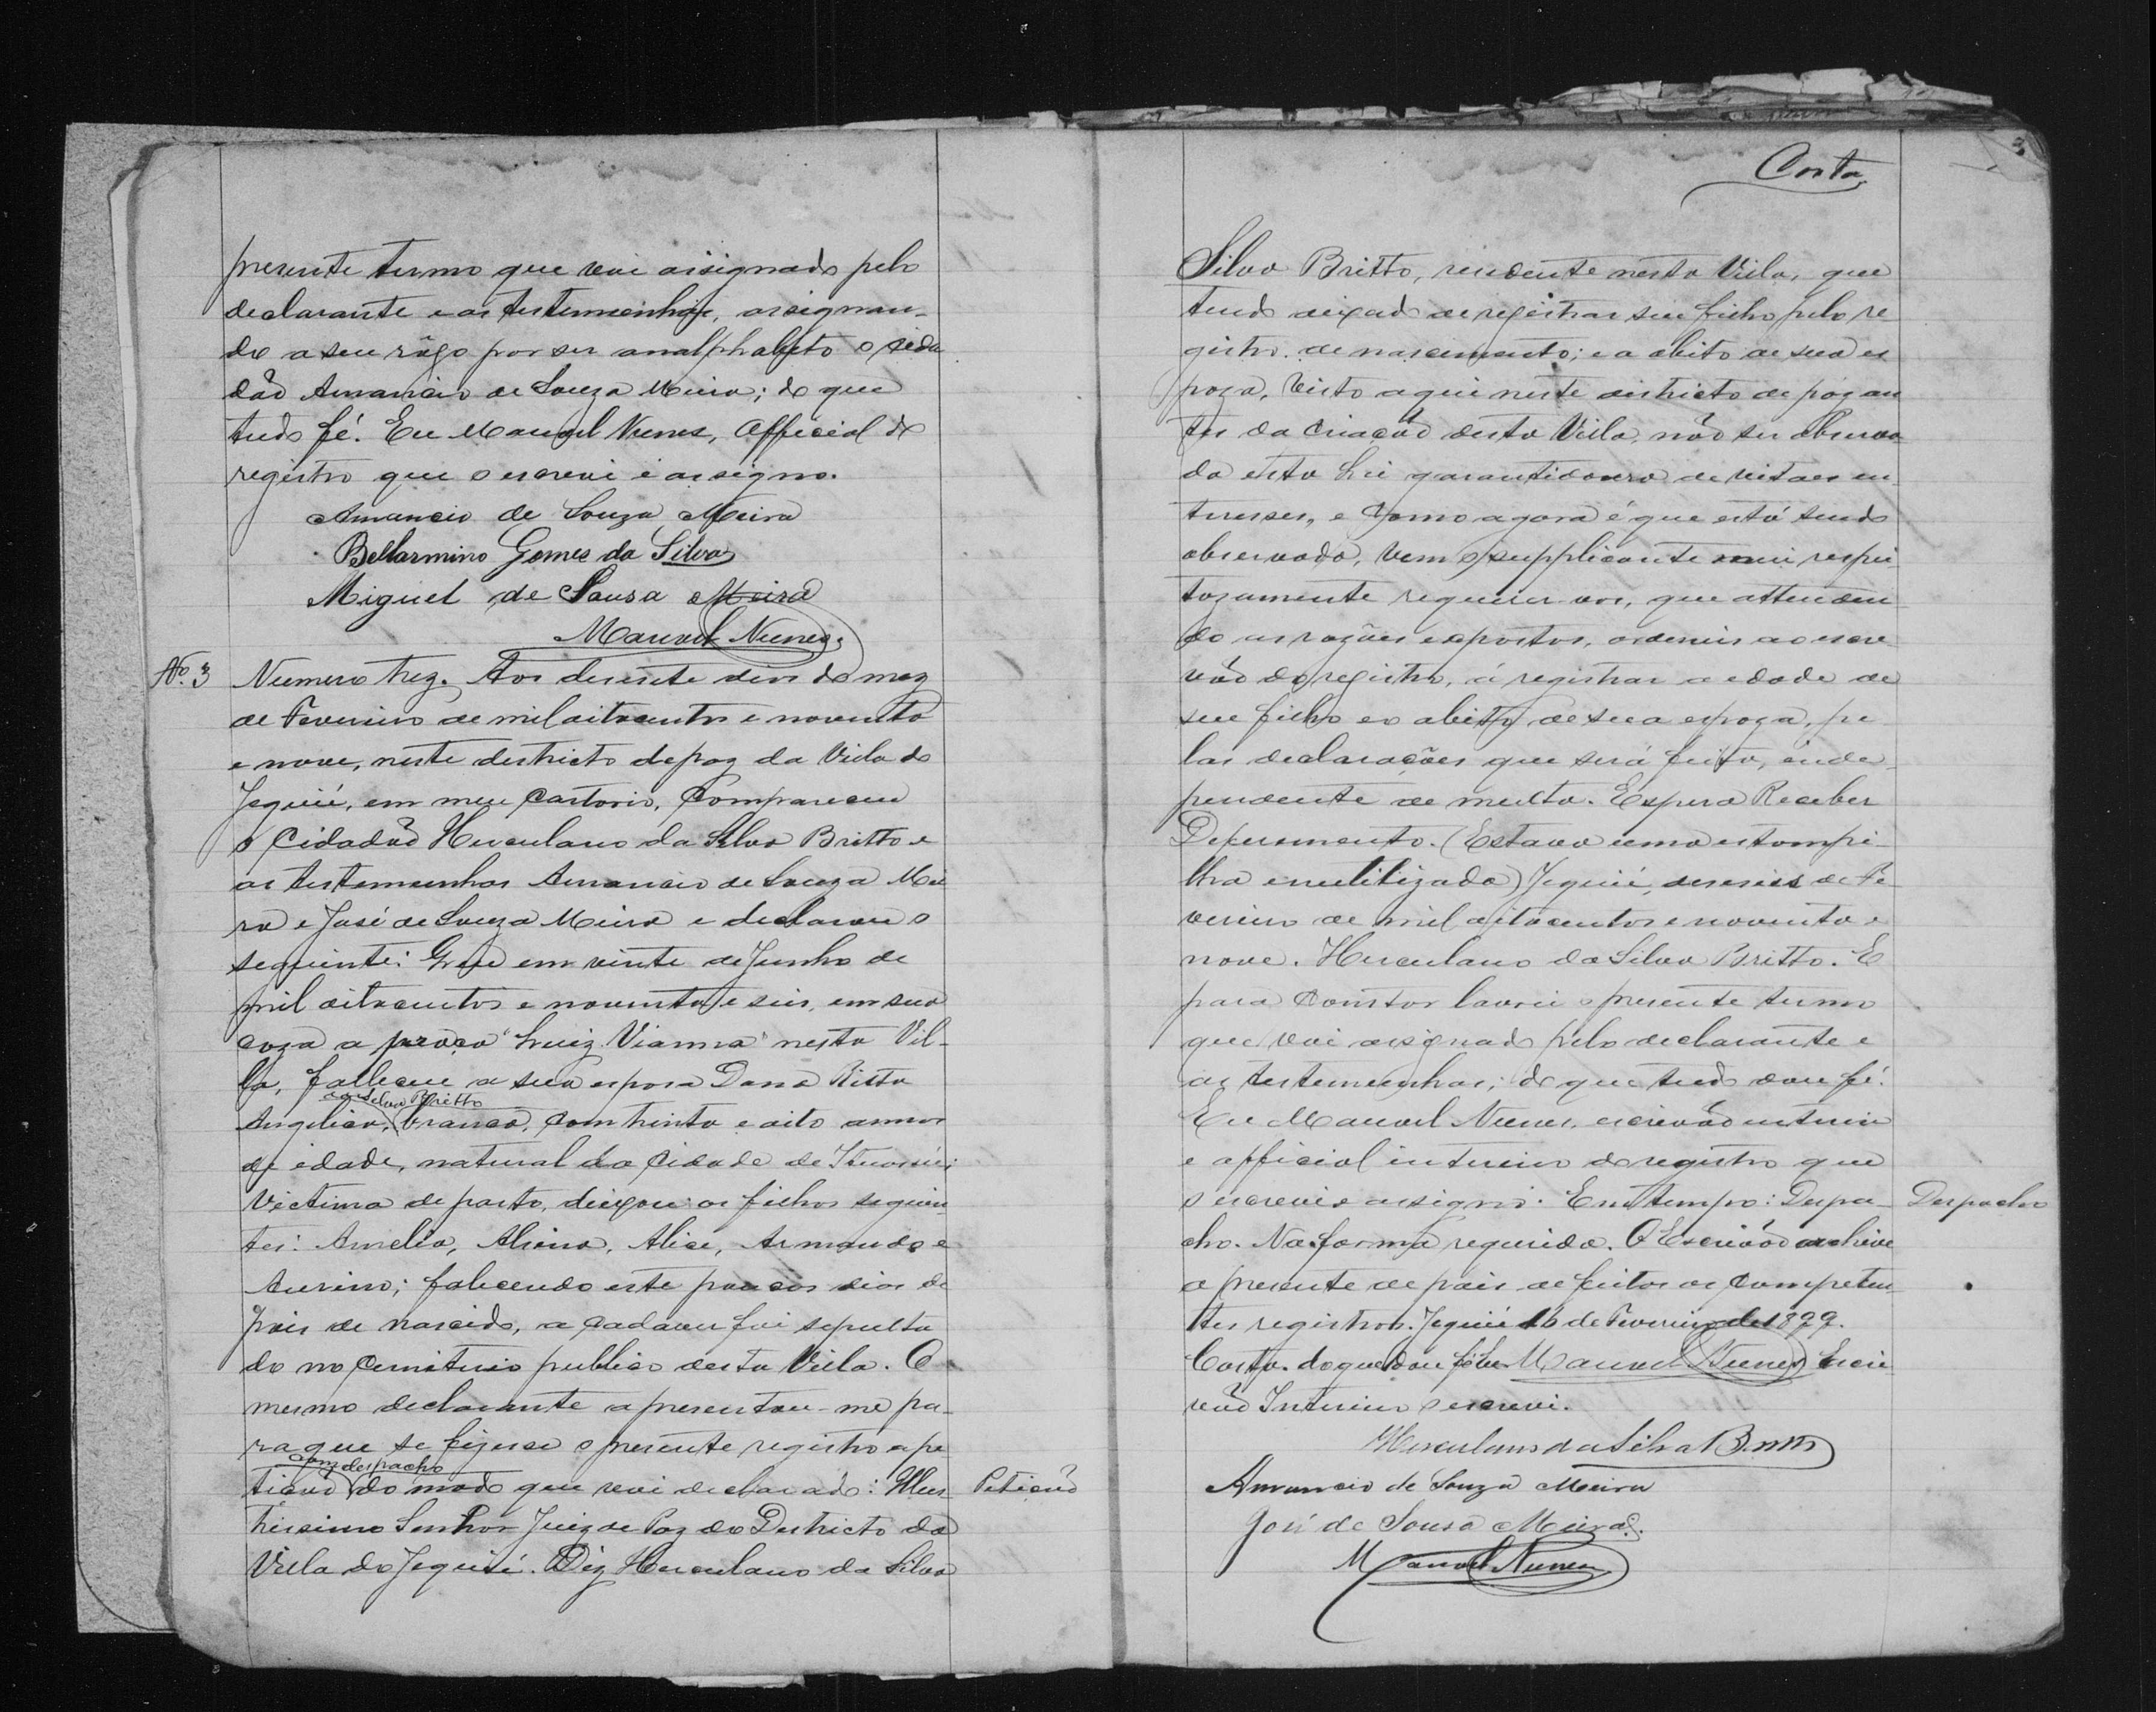 presente termo que vai assignado pelo
declarante e as testemunhas, assignan-
do a seu rôgo por ser analphabeto o cida
dão Amancio de Souza Meira; do que
tudo fé. Eu Manoel Nunes, Official do
registro que o escrevi e assigno.
Amancio de Souza Meira
Bellarmino Gomes da Silva
Miguel de Sousa Meira
Manoel Nunes.
No. 3 Numero trez. Aos deseste dias do mez
de Fevereiro de mil oitocentos e noventa
e nove, neste destricto de paz da Villa do
Jequié, em meu Cartorio, Compareceu
o Cidadão Herculano da Silva Britto e
as testemunhas Amancio de Souza Mei
ra e José de Souza Meira e declarou o
seguinte: Que em vinte de Junho de
mil oitocentos e noventa e seis, em sua
caza a praça "Luiz Vianna" nesta Vil-
la, falleceu a sua esposa Dona Ritta
da Silva Britto
Angelica, branca, com trinta e oito annos
de edade, natural da Cidade de
Victima de parto, deixou os filhos seguin
tes: Amelia, Alice, Armando e
Aurino; falecendo este poucos dias de
pois de nascido, o cadaver foi sepulta
do no Cemiterio publico desta Villa. O
mesmo declarante apresentou-me pa-
ra que se fizesse o presente registro a pe
com despacho
tição do modo que vai declarado: Illus Petição
trissimo Senhor Juiz de Paz do Destricto da
Villa do Jequié. Diz Herculano da Silva
3
Costa
Silva Britto, residente nesta Villa, que
tendo deixado de registrar seu filho pelo re
gistro de nascimento; e a obito de sua es
poza, visto aqui neste districto de paz an
tes da Criação desta Villa, não ser observa
da esta Lei garantidoura de vitaes in
teresses, e Como agora é que está sendo
observada, vem o supplicante mui respei
tozamente requerer-vos, que attenden
do as razões expostas, ordeneis ao escri
vão do registro, á registrar a edade de
seu filho e o obito de sua espoza, pe
las declarações que será feita, inde-
pendente de multa. Espera Receber
Deferimento. (Estava uma estampi-
lha inutilizada) Jequié, deseseis de Fe-
vereiro de mil oitocentos e noventa e
nove. Herculano da Silva Britto. E
para Constar lavrei o presente termo
que vai assignado pelo declarante e
as testemunhas; do que tudo dou fé.
Eu Manoel Nunes, escrivão interino
e official interino do registro que
o escrevi e assigno. Em tempo: Despa- Despacho
cho. Na forma requerida. O Escrivão archive
a presente depois de feitos os competen
tes registros. Jequié 16 de Fevereiro de 1899.
Costa. do que dou fé Eu Manoel Nunes Escri
vão Interino o escrevi.
Herculano da Silva Britto
Amancio de Souza Meira
José de Sousa Meira
Manoel Nunes